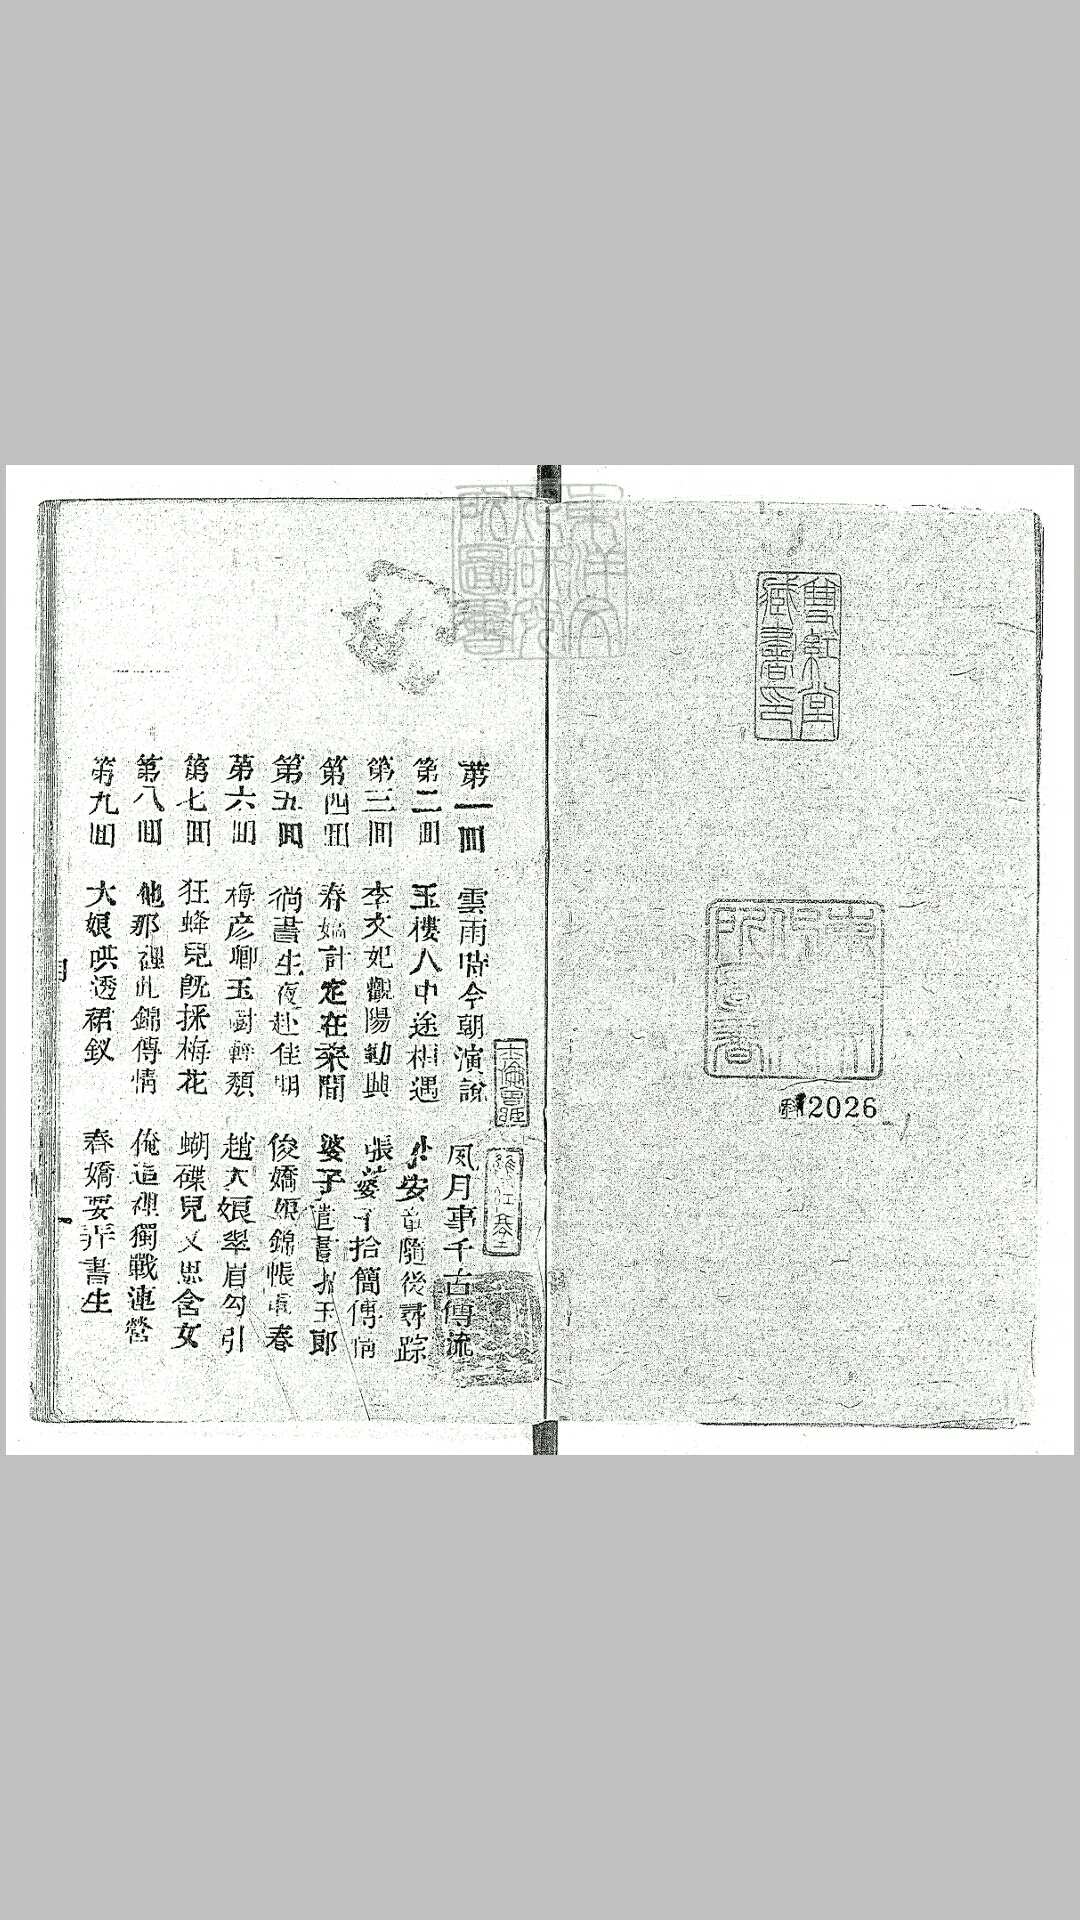 雙紅堂
藏書印
2026
東洋文
化研究
所圖書
第一回 雲雨時今朝演說 風月事千古傳流
第二回 玉樓人中途相遇 小安童隨後尋踪
第三回 李文妃觀陽動興 張婆子拾簡傳情
第四回 春嬌計定在樂間 婆子遣書招玉郎
第五回 徜書生夜赴佳期 俊嬌娘錦帳 春
第六回 梅彥卿玉 頹 趙大娘翠眉勾引
第七回 狂蜂兒旣採梅花 蝴碟兒又思含女
第八回 他那裡此錦傳情 俺這裡獨戰連營
第九回 大娘哄透裙釵 春嬌耍弄書生